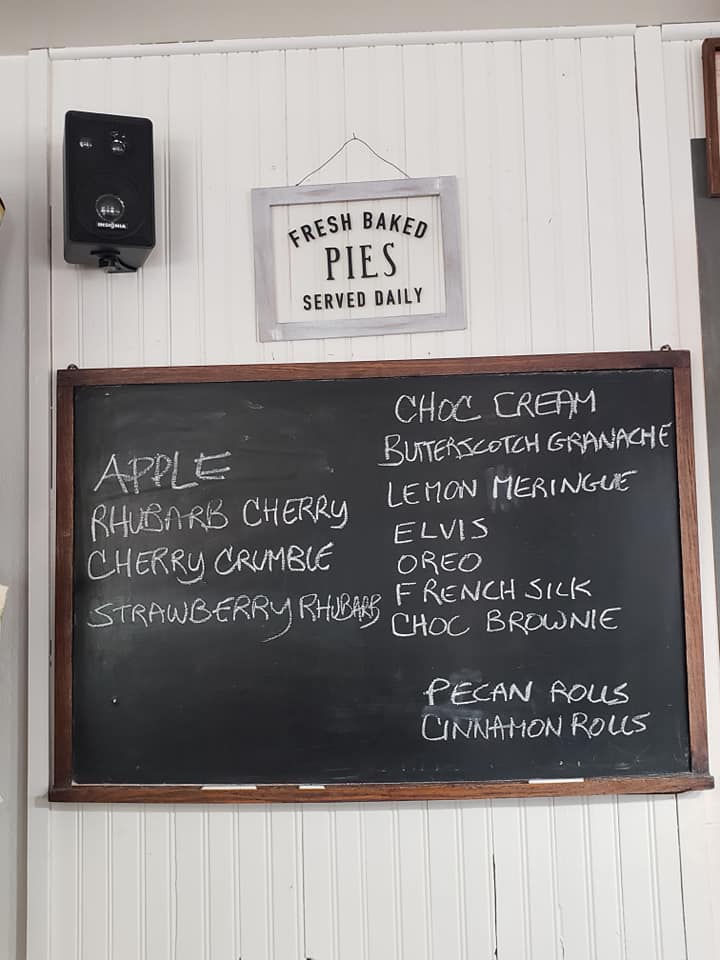 INSIGNIA
FRESH BAKED
PIES
SERVED DAILY
APPLE
RHUBARB CHERRY
CHERRY CRUMBLE
STRAWBERRY RHUBARB
CHOC CREAM
BUTTERSCOTCH GRANACHE
LEMON MERINGUE
ELVIS
OREO
FRENCH SILK
CHOC BROWNIE
PECAN ROLLS
CINNAMON ROLLS